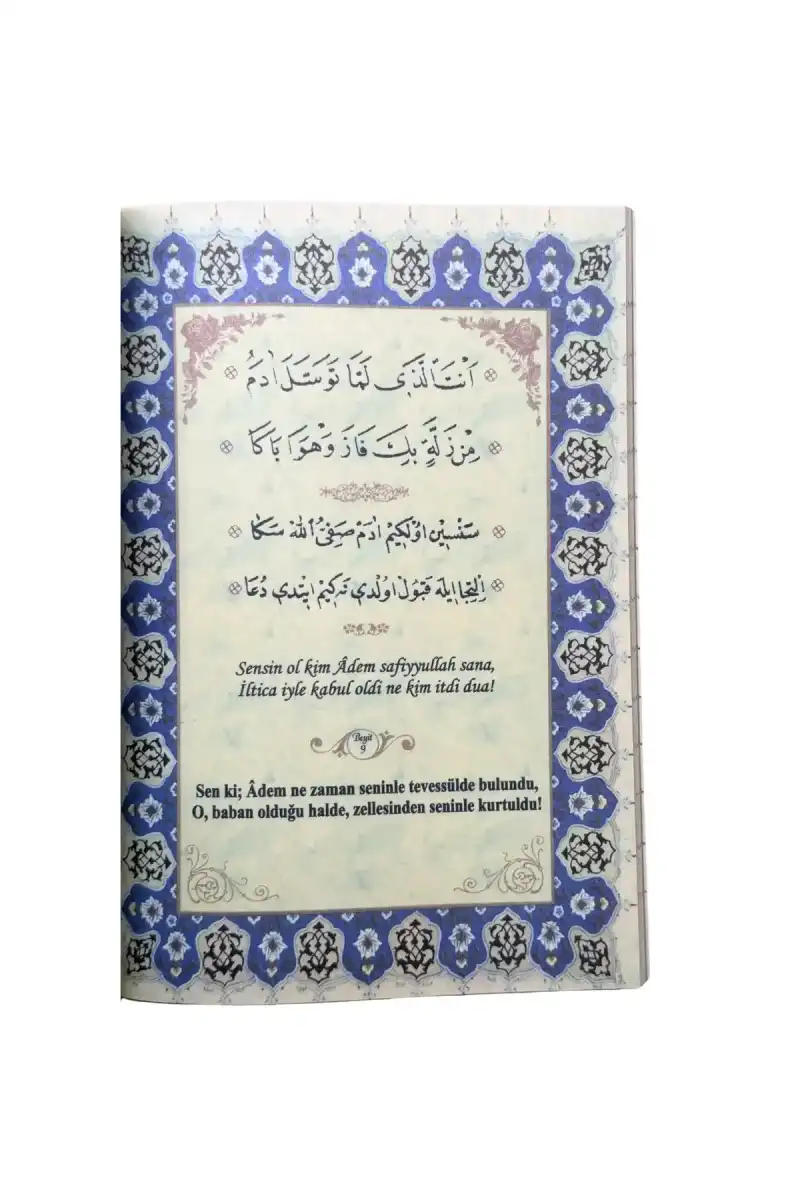 اَنْتَ الَّذِي لَمَّا تَوَسَّلَ اٰدَمُ
مِنْ زَلَّةٍ بِكَ فَازَ وَهْوَ اَبَاكَا
سَنْسِيْن اوُلكِيمْ اٰدَمْ صَفِيُّ اللّٰه سَكَا
اِلتِجَا ايله قَبُولْ اوُلدِي نَه كِيمْ ايتدِي دُعَا
Sensin ol kim Âdem safiyyullah sana,
İltica iyle kabul oldi ne kim itdi dua!
Beyit
9
Sen ki; Âdem ne zaman seninle tevessülde bulundu,
O, baban olduğu halde, zellesinden seninle kurtuldu!